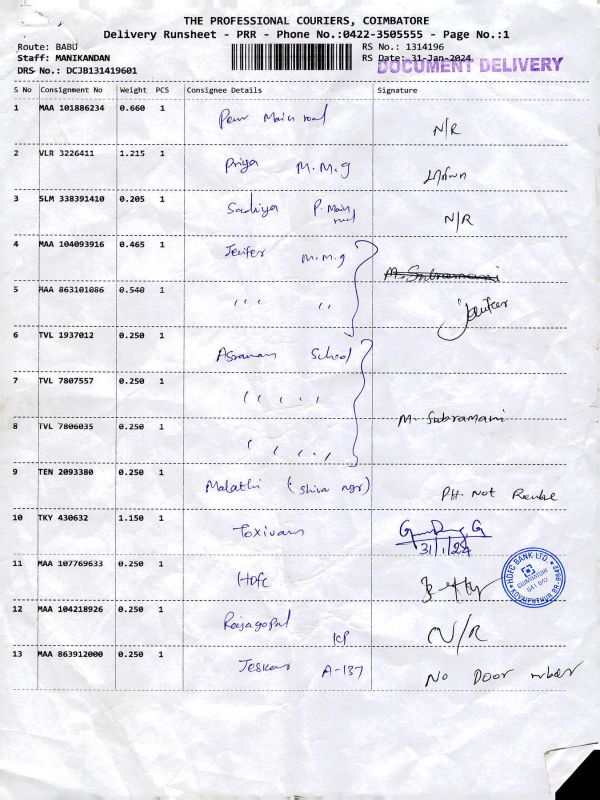 THE PROFESSIONAL COURIERS, COIMBATORE
Delivery Runsheet - PRR - Phone No.:0422-3505555 - Page No.:1
Route: BABU RS No.: 1314196
Staff: MANIKANDAN RS Date: 31-Jan-2024
DRS No.: DCJB131419601 DOCUMENT DELIVERY
S No Consignment No Weight PCS Consignee Details Signature
1 MAA 101886234 0.660 1 Main road N/R
2 VLR 3226411 1.215 1 Priya M.M.g
3 SLM 338391410 0.205 1 P. Main road N/R
4 MAA 104093916 0.465 1 Jenifer M.M.g M. Subramani
5 MAA 863101086 0.540 1 ,, ,,
6 TVL 1937012 0.250 1 School
7 TVL 7807557 0.250 1
8 TVL 7806035 0.250 1 M. Subramani
9 TEN 2093380 0.250 1 Malathi (Shiva ngr) PH. Not
10 TKY 430632 1.150 1 31/1/24
11 MAA 107769633 0.250 1 Hdfc
HDFC BANK LTD
COIMBATORE
641 047
12 MAA 104218926 0.250 1 Rajagopal ICP N/R
13 MAA 863912000 0.250 1 A-137 No Door